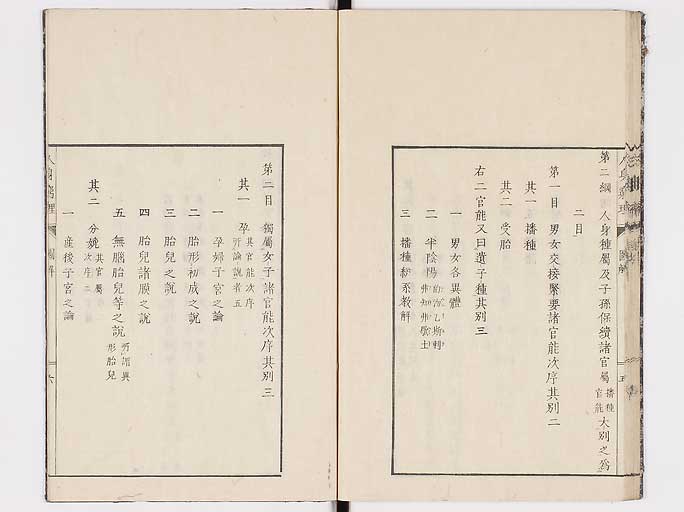 第二綱 人身種屬及子孫保續諸官屬 播種官能 大別之爲
二目
第一目 男女交接緊要諸官能次序其別二
其一 播種
其二 受胎
右二官能又曰遺子種其別三
一 男女各異體
二 半陰陽
三 播種
第二目 獨屬女子諸官能次序其別三
其一 孕 其官能次序所論說者五
一 孕婦子宮之論
二 胎形初成之說
三 胎兒之說
四 胎兒諸膜之說
五 無腦胎兒等之說 所謂異形胎兒
其二 分娩 其官屬次序
一 産後子宮之論
六